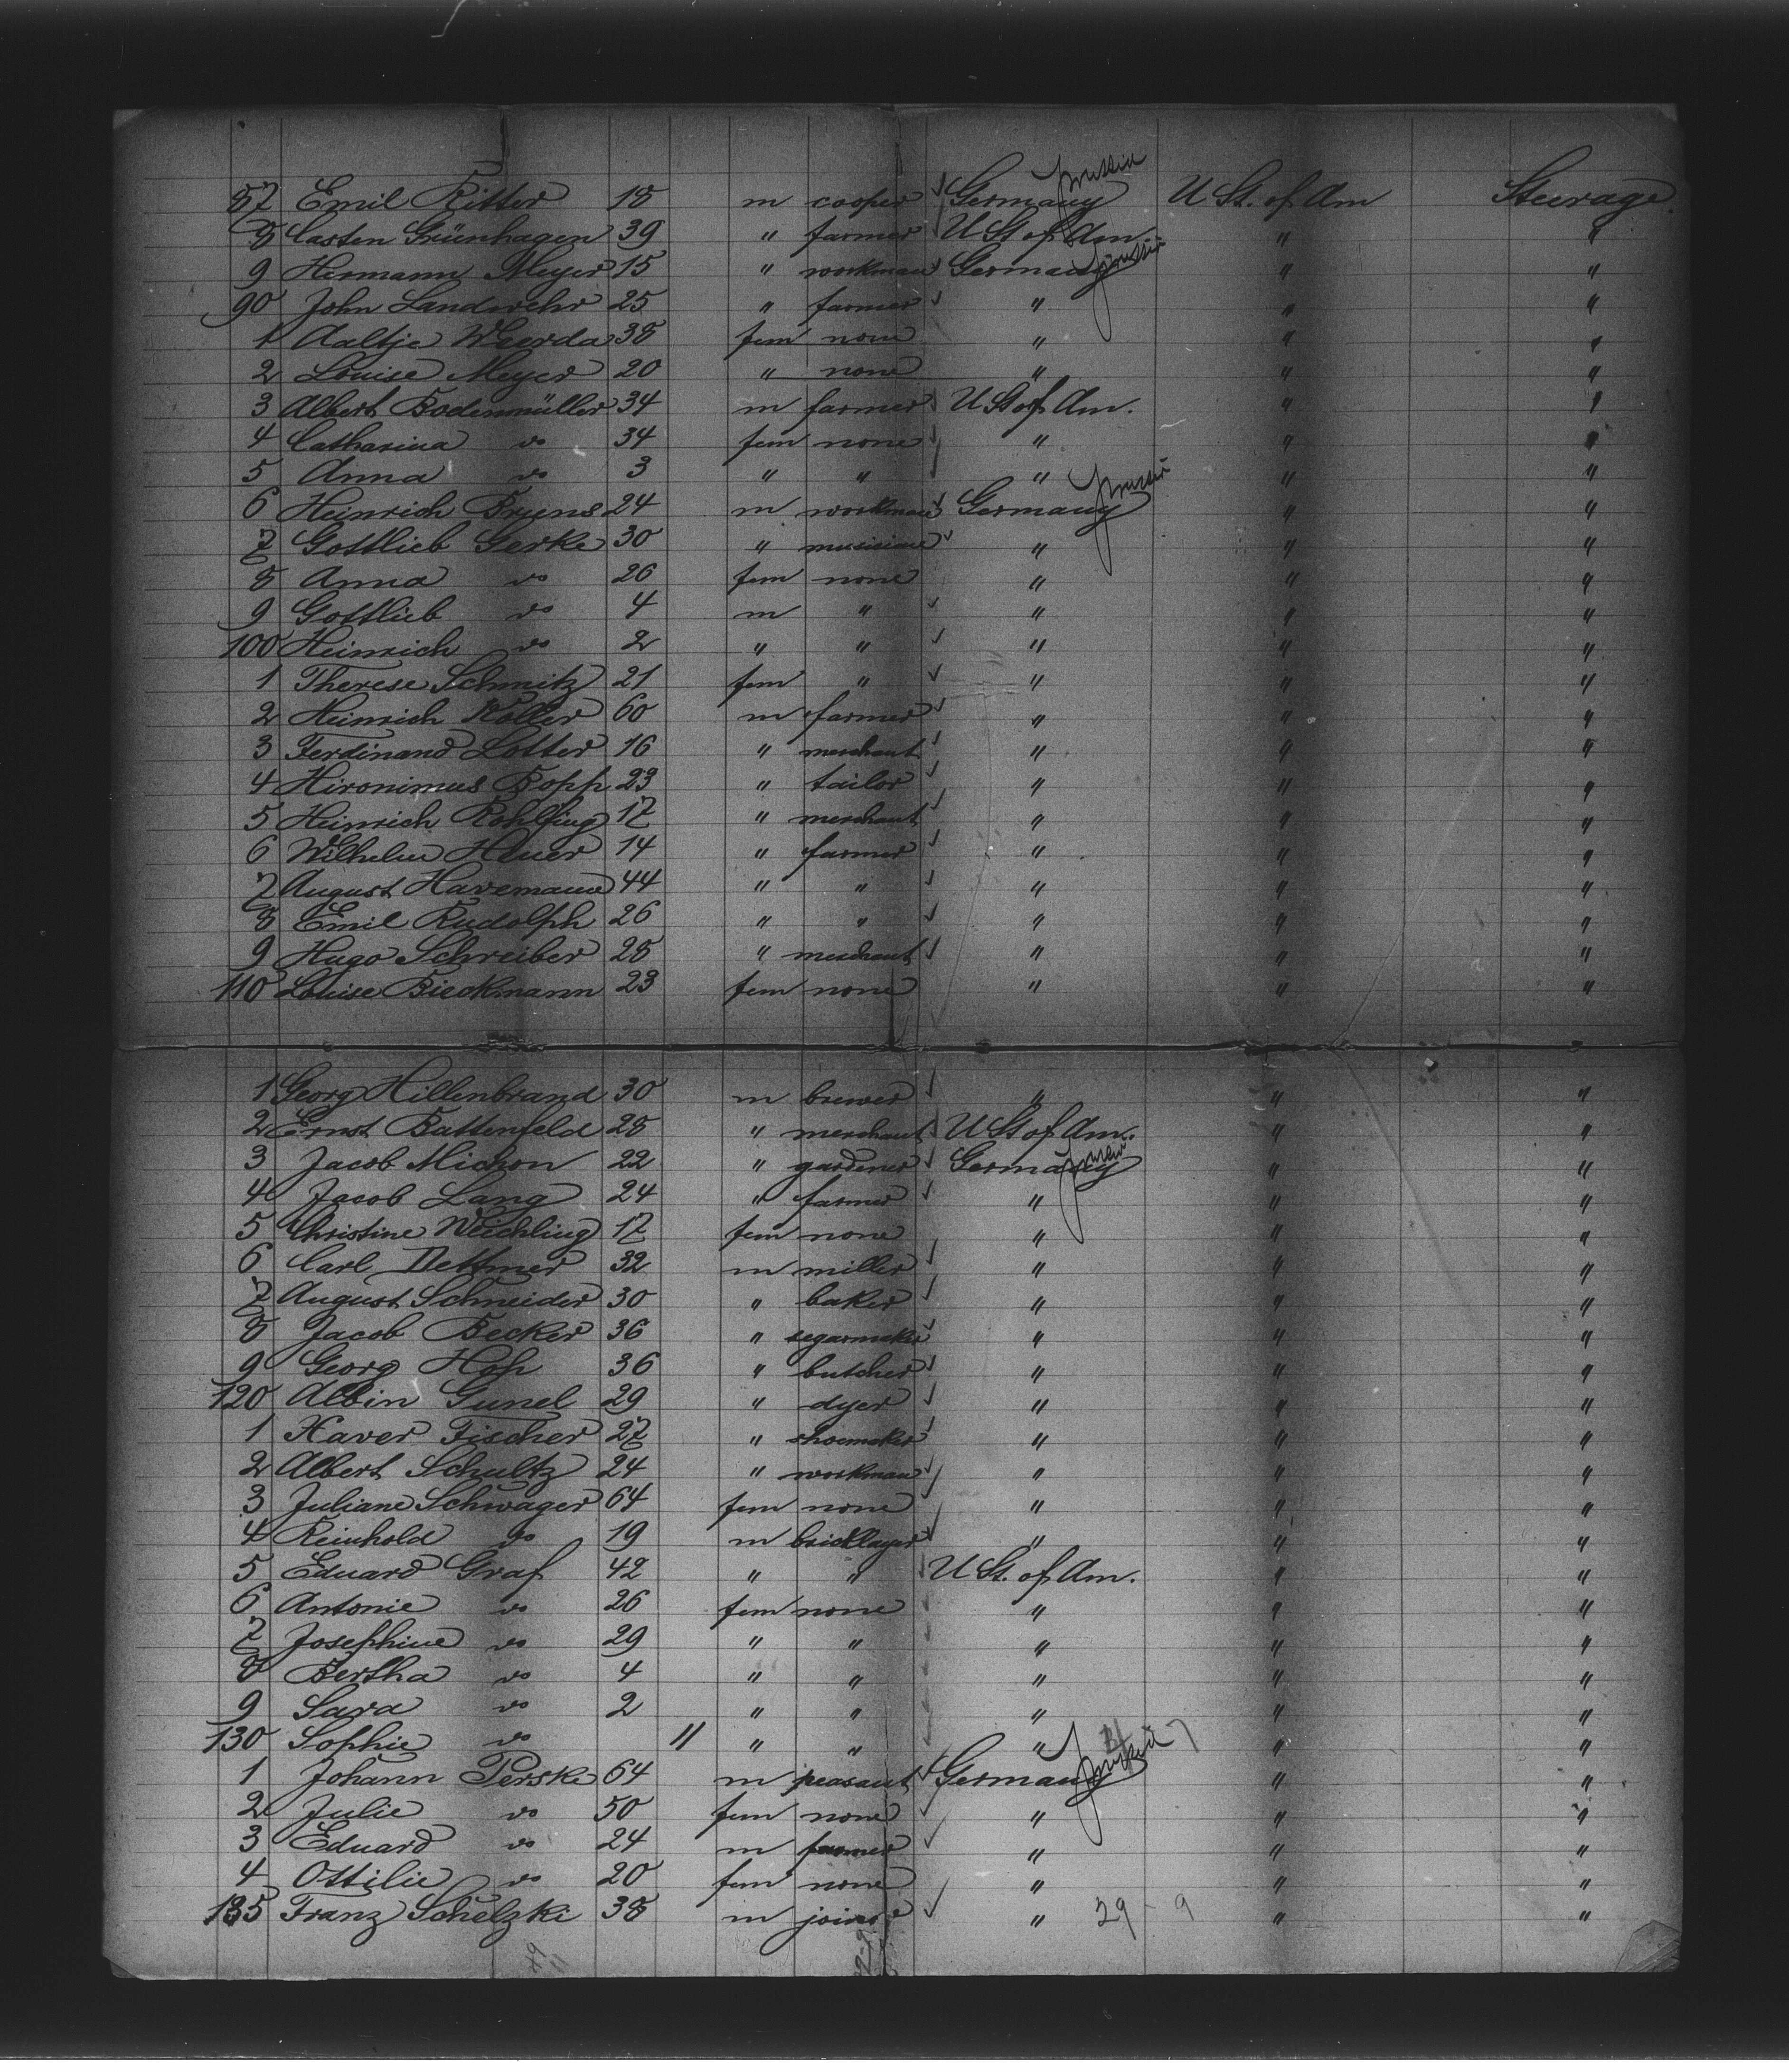 87 Emil Ritter 18 m cooper Germany Prussia U St. of Am Steerage
8 Carsten Grünhagen 39 " farmer U St of Am. " "
9 Hermann Meyer 15 " workman Germany Prussia " "
90 John Landwehr 25 " farmer " " "
1 Aaltje Weerda 38 fem none " " "
2 Louise Meyer 20 " none " " "
3 Albert Bodenmüller 34 m farmer U St of Am. " "
4 Catharina do 34 fem none " " "
5 Anna do 3 " " " " "
6 Heinrich Bruns 24 m workman Germany Prussia " "
7 Gottlieb Gerke 30 " musician " " "
8 Anna do 26 fem none " " "
9 Gottlieb do 4 m " " " "
100 Heinrich do 2 " " " " "
1 Therese Schmitz 21 fem " " " "
2 Heinrich Koller 60 m farmer " " "
3 Ferdinand Lotter 16 " merchant " " "
4 Hironimus Bopp 23 " tailor " " "
5 Heinrich Rohlfing 17 " merchant " " "
6 Wilhelm 14 " farmer " " "
7 August Havemann 44 " " " " "
8 Emil Rudolph 26 " " " " "
9 Hugo Schreiber 28 " merchant " " "
110 Louise Bieckmann 23 fem none " " "
1 Georg Hillenbrand 30 m brewer " " "
2 Ernst Battenfeld 28 " merchant U St of Am. " "
3 Jacob Michon 22 " gardener Germany " "
4 Jacob Lang 24 " farmer " " "
5 Christine Weichling 17 fem none " " "
6 Carl Dettmer 32 m miller " " "
7 August Schneider 30 " baker " " "
8 Jacob Becker 36 " segarmaker " " "
9 Georg 36 " butcher " " "
120 Albin Gunel 29 " dyer " " "
1 Xaver Fischer 27 " shoemaker " " "
2 Albert Schultz 24 " workman " " "
3 Juliane Schwager 64 fem none " " "
4 Reinhold do 19 m bricklayer " " "
5 Eduard Graf 42 " " U St. of Am. " "
6 Antonie do 26 fem none " " "
7 Josephine do 29 " " " " "
8 Bertha do 4 " " " " "
9 Sara do 2 " " " " "
130 Sophie do 11 " " " " "
1 Johann Perske 64 m peasant Germany Prussia " "
2 Julie do 50 fem none " " "
3 Eduard do 24 m farmer " " "
4 Ottilie do 20 fem none " " "
135 Franz Schelzki 38 m joiner " 29 - 9 " "